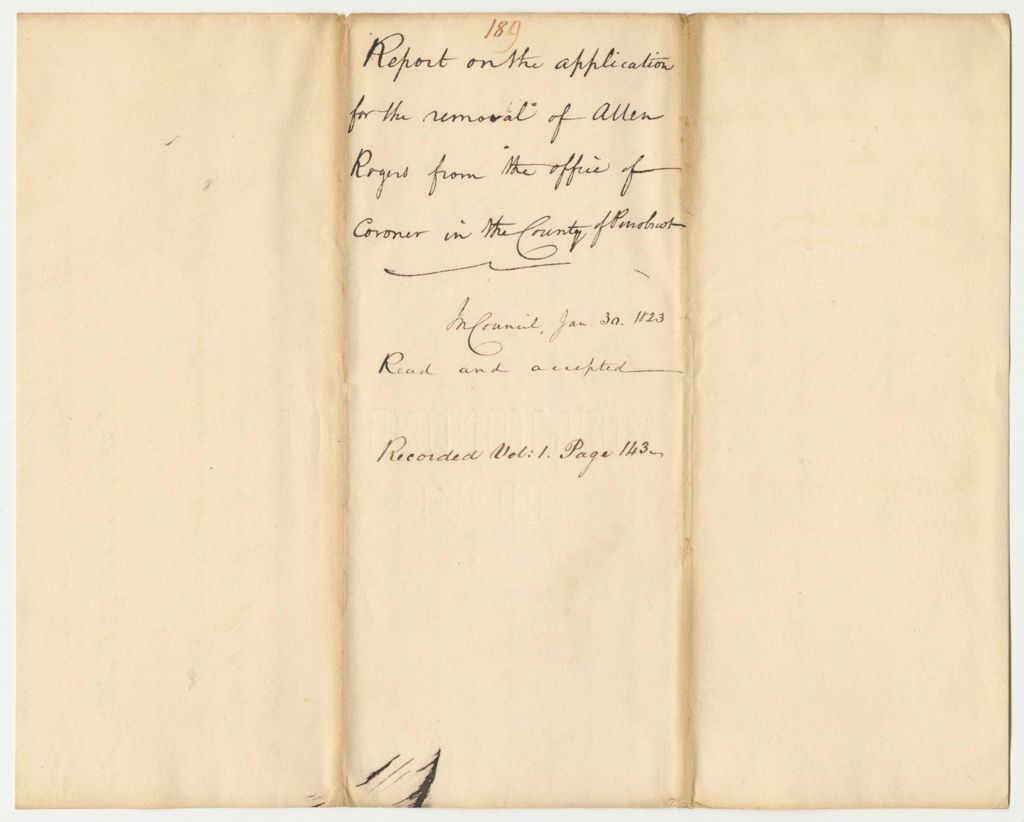 189
Report on the application
for the removal of Allen
Rogers from the office of
Coroner in the County of Penobscot
In Council, Jan. 30. 1823
Read and accepted
Recorded Vol: 1. Page 143